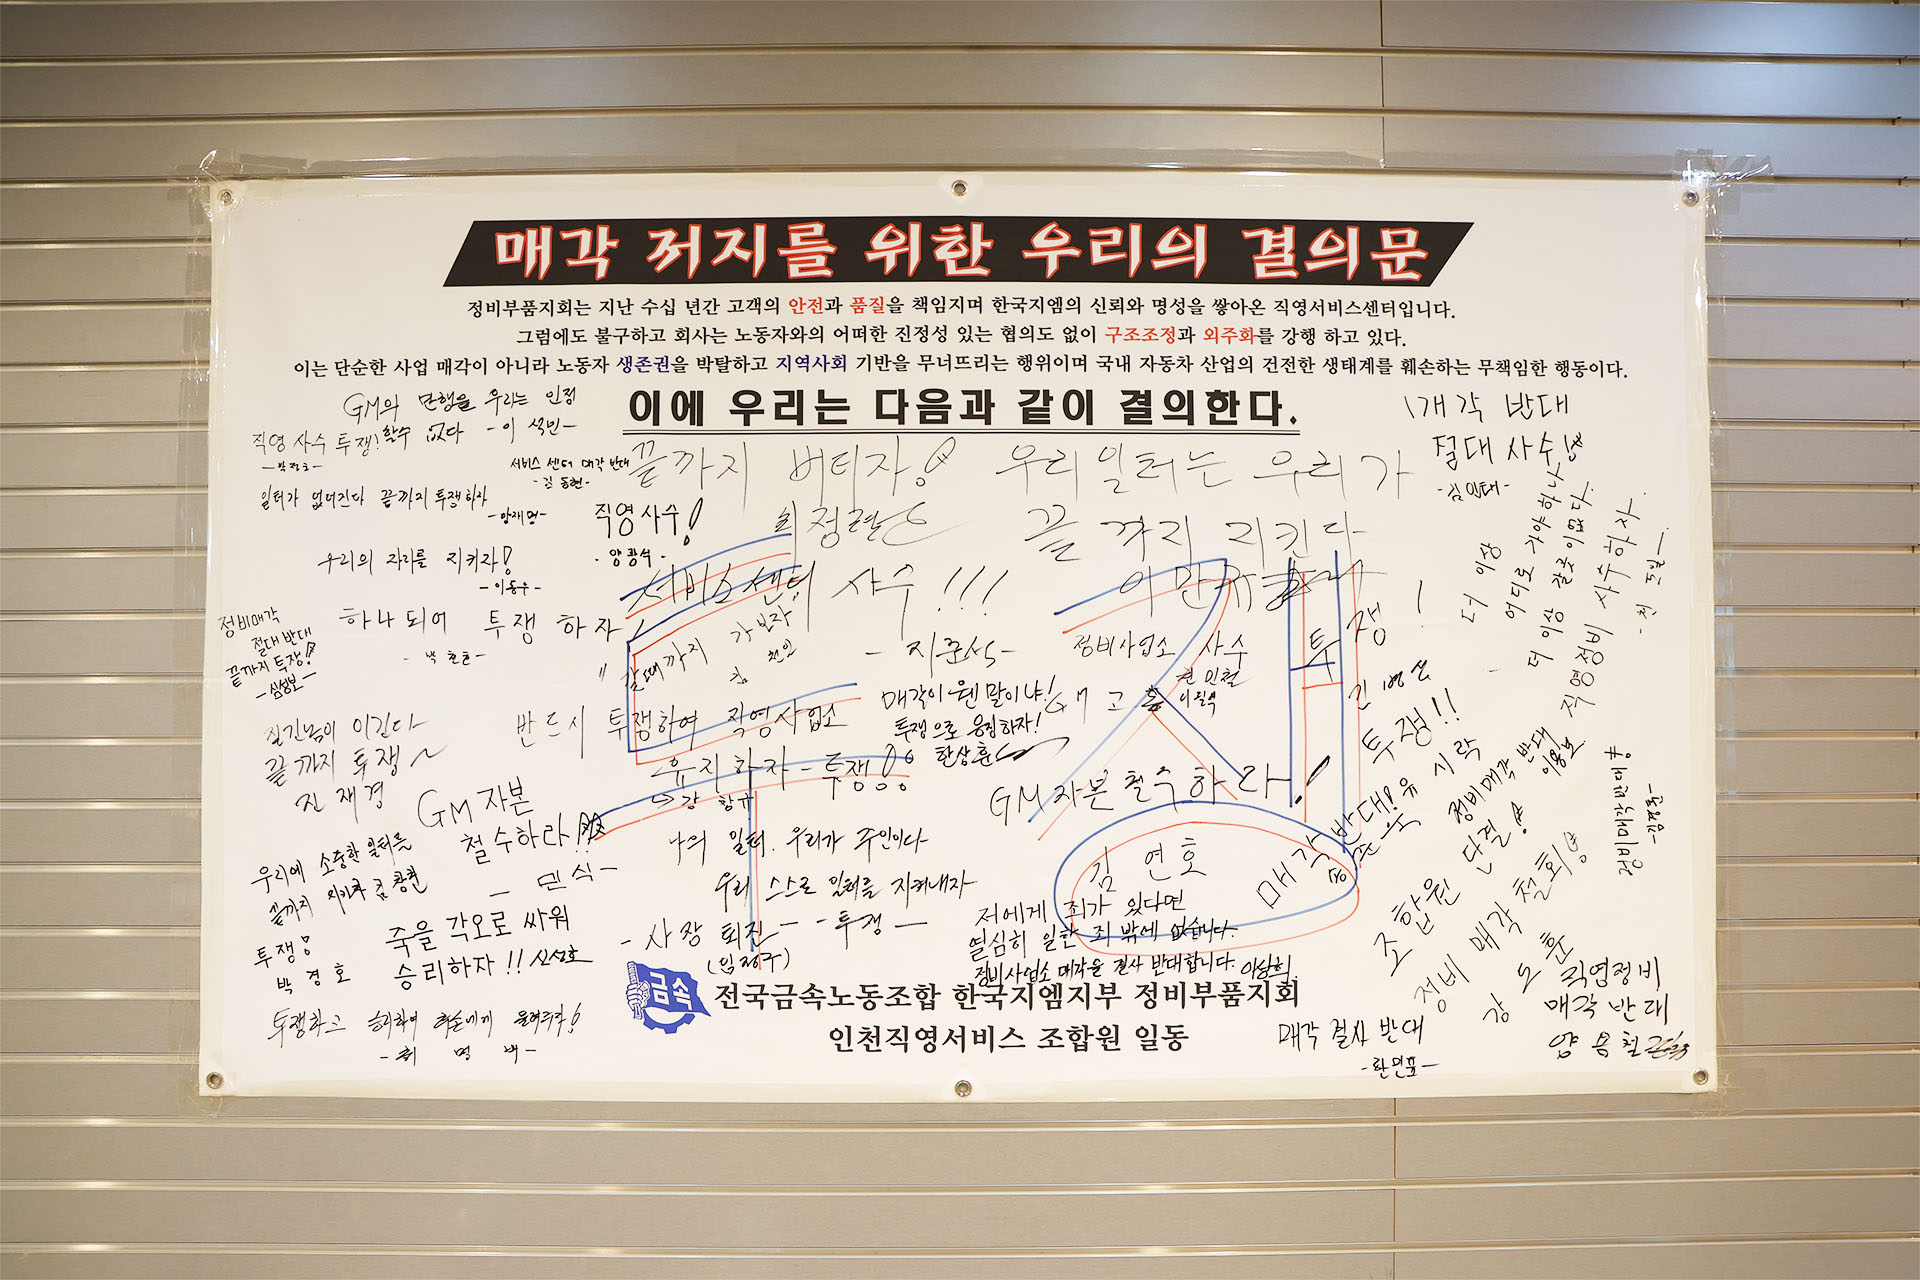 매각 저지를 위한 우리의 결의문
정비부품지회는 지난 수십 년간 고객의 안전과 품질을 책임지며 한국지엠의 신뢰와 명성을 쌓아온 직영서비스센터입니다.
그럼에도 불구하고 회사는 노동자와의 어떠한 진정성 있는 협의도 없이 구조조정과 외주화를 강행 하고 있다.
이는 단순한 사업 매각이 아니라 노동자 생존권을 박탈하고 지역사회 기반을 무너뜨리는 행위이며 국내 자동차 산업의 건전한 생태계를 훼손하는 무책임한 행동이다.
이에 우리는 다음과 같이 결의한다.
GM의 만행을 우리는 인정
할수 없다 -이 석민-
직영 사수 투쟁!
서비스 센터 매각 반대
-김 동현-
일터가 없어진다 끝까지 투쟁하자
직영사수!
-양광석-
우리의 자리를 지키자!
-이동우-
정비매각
절대반대
끝까지 투쟁!
-심성보-
하나되어 투쟁 하자!
끝까지 버티자!
최정련
우리일터는 우리가
끝까지 지킨다
매각 반대
절대 사수!
-김인태-
서비스센터 사수!!!
-지준식-
투쟁
갈때까지 가보자
정비사업소 사수
권인철
투쟁!
더 이상
어디로 가야하나
더 이상 갈곳이없다.
직영정비 사수하자.
질긴놈이 이긴다
끝까지 투쟁~
진재경
반드시 투쟁하여 직영사업소
유지하자-투쟁!
강창규
매각이 웬 말이냐!
투쟁으로 응징하자!
한상훈
GM자본 철수하라!
투쟁!!
유시락
정비매각 반대
이용보
정비매각반대
GM자본
철수하라!!
-민식-
우리에 소중한 일터를
끝까지 지키자 김광현
투쟁!
박경호
죽을 각오로 싸워
승리하자!! 신성호
나의 일터. 우리가 주인이다
우리 스스로 일터를 지켜내자
-사장 퇴진- -투쟁-
(임정주)
김연호
저에게 죄가 있다면
열심히 일한 죄 밖에 없습니다.
정비사업소 매각을 결사 반대합니다. 이상희.
매각반대!
조합원 단결!
정비 매각 철회!
강도훈
투쟁하고 승리하여 후손에게 물려주자!
직영정비
매각 반대
양용철
매각 결사 반대
금속
전국금속노동조합 한국지엠지부 정비부품지회
인천직영서비스 조합원 일동